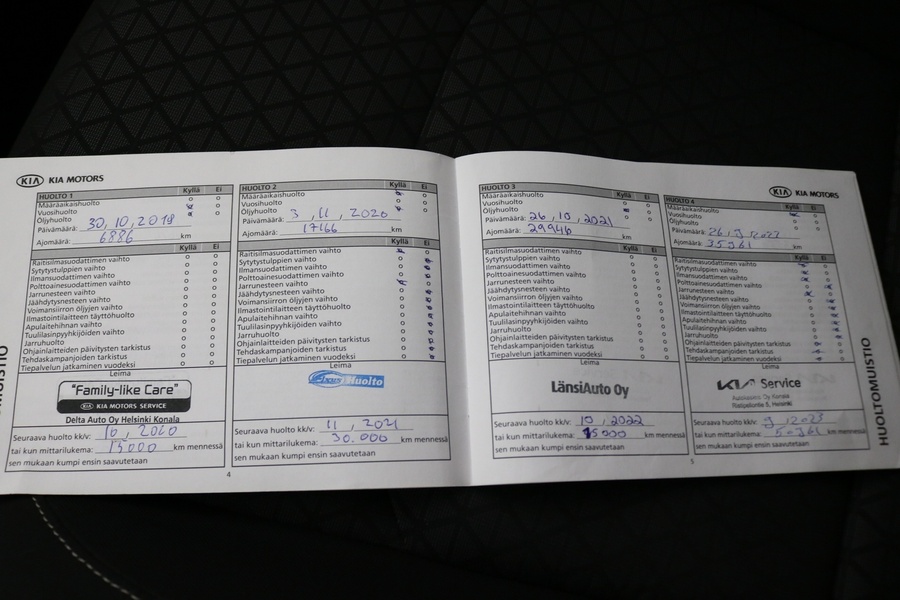 KIA KIA MOTORS
HUOLTO 1 Kyllä Ei
Määräaikaishuolto
Vuosihuolto
Öljyhuolto
Päivämäärä: 30,10,2019
Ajomäärä: 6886 km
Kyllä Ei
Raitisilmasuodattimen vaihto
Sytytystulppien vaihto
Ilmansuodattimen vaihto
Polttoainesuodattimen vaihto
Jarrunesteen vaihto
Jäähdytysnesteen vaihto
Voimansiirron öljyjen vaihto
Ilmastointilaitteen täyttöhuolto
Apulaitehihnan vaihto
Tuulilasinpyyhkijöiden vaihto
Jarruhuolto
Ohjainlaitteiden päivitysten tarkistus
Tehdaskampanjoiden tarkistus
Tiepalvelun jatkaminen vuodeksi
Leima
"Family-like Care"
KIA KIA MOTORS SERVICE
Delta Auto Oy Helsinki Konala
Seuraava huolto kk/v: 10, 2020
tai kun mittarilukema: 15000 km mennessä
sen mukaan kumpi ensin saavutetaan
4
HUOLTO 2 Kyllä Ei
Määräaikaishuolto
Vuosihuolto
Öljyhuolto
Päivämäärä: 3, 11, 2020
Ajomäärä: 17166 km
Kyllä Ei
Raitisilmasuodattimen vaihto
Sytytystulppien vaihto
Ilmansuodattimen vaihto
Polttoainesuodattimen vaihto
Jarrunesteen vaihto
Jäähdytysnesteen vaihto
Voimansiirron öljyjen vaihto
Ilmastointilaitteen täyttöhuolto
Apulaitehihnan vaihto
Tuulilasinpyyhkijöiden vaihto
Jarruhuolto
Ohjainlaitteiden päivitysten tarkistus
Tehdaskampanjoiden tarkistus
Tiepalvelun jatkaminen vuodeksi
Leima
Huolto
Seuraava huolto kk/v: 11, 2021
tai kun mittarilukema: 30.000 km mennessä
sen mukaan kumpi ensin saavutetaan
HUOLTO 3 Kyllä Ei
Määräaikaishuolto
Vuosihuolto
Öljyhuolto
Päivämäärä: 26, 10, 2021
Ajomäärä: 29946 km
Kyllä Ei
Raitisilmasuodattimen vaihto
Sytytystulppien vaihto
Ilmansuodattimen vaihto
Polttoainesuodattimen vaihto
Jarrunesteen vaihto
Jäähdytysnesteen vaihto
Voimansiirron öljyjen vaihto
Ilmastointilaitteen täyttöhuolto
Apulaitehihnan vaihto
Tuulilasinpyyhkijöiden vaihto
Jarruhuolto
Ohjainlaitteiden päivitysten tarkistus
Tehdaskampanjoiden tarkistus
Tiepalvelun jatkaminen vuodeksi
Leima
LänsiAuto Oy
Seuraava huolto kk/v: 10, 2022
tai kun mittarilukema: km mennessä
sen mukaan kumpi ensin saavutetaan
5
KIA KIA MOTORS
HUOLTO 4 Kyllä Ei
Määräaikaishuolto
Vuosihuolto
Öljyhuolto
Päivämäärä: 26, 9 2022
Ajomäärä: 35961 km
Kyllä Ei
Raitisilmasuodattimen vaihto
Sytytystulppien vaihto
Ilmansuodattimen vaihto
Polttoainesuodattimen vaihto
Jarrunesteen vaihto
Jäähdytysnesteen vaihto
Voimansiirron öljyjen vaihto
Ilmastointilaitteen täyttöhuolto
Apulaitehihnan vaihto
Tuulilasinpyyhkijöiden vaihto
Jarruhuolto
Ohjainlaitteiden päivitysten tarkistus
Tehdaskampanjoiden tarkistus
Tiepalvelun jatkaminen vuodeksi
Leima
KIA Service
Konala
Helsinki
Seuraava huolto kk/v: 9, 2023
tai kun mittarilukema: 50961 km mennessä
sen mukaan kumpi ensin saavutetaan
HUOLTOMUISTIO